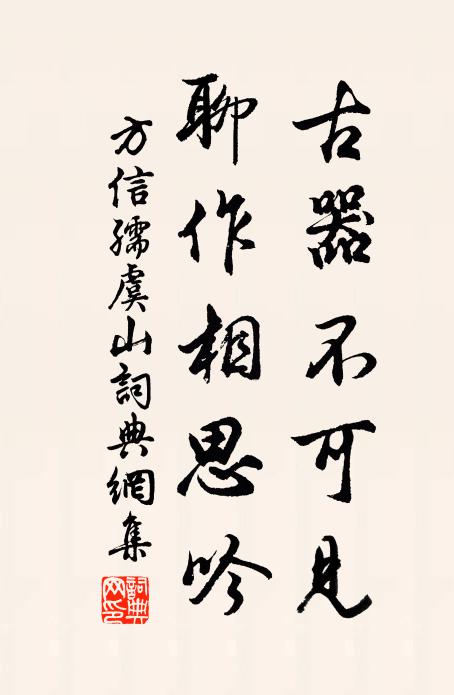 古器不可見
聊作相思吟
方信孺虞山詞典網集
詞典
网印